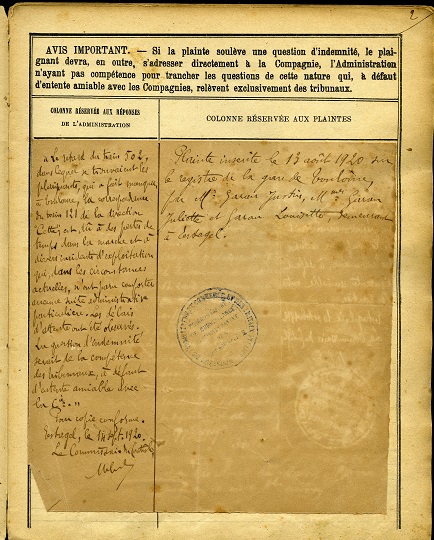 2
AVIS IMPORTANT. — Si la plainte soulève une question d'indemnité, le plai-
gnant devra, en outre, s'adresser directement à la Compagnie, l'Administration
n'ayant pas compétence pour trancher les questions de cette nature qui, à défaut
d'entente amiable avec les Compagnies, relèvent exclusivement des tribunaux.
COLONNE RÉSERVÉE AUX RÉPONSES
DE L'ADMINISTRATION
COLONNE RÉSERVÉE AUX PLAINTES
« Le retard du train 502,
dans lequel se trouvaient les
plaignants, qui a fait manquer,
à Toulouse, la correspondance
du train 121 de la direction
Cette, est dû à des pertes de
temps dans la marche et à
divers incidents d'exploitation
qui, dans les circonstances
actuelles, n'ont paru comporter
aucune suite administrative
particulière. Les délais
d'attente ont été observés.
La question d'indemnité
serait de la compétence
des tribunaux, à défaut
d'entente amiable avec
la Cie. »
Pour copie conforme.
Estagel, le 14 7bre 1920.
Le Commissaire
Plainte inscrite le 13 août 1920 sur
le registre de la gare de Toulouse,
par Mr Garau Justin, Mmes Garau
Juliette et Garau, demeurant
à Estagel.